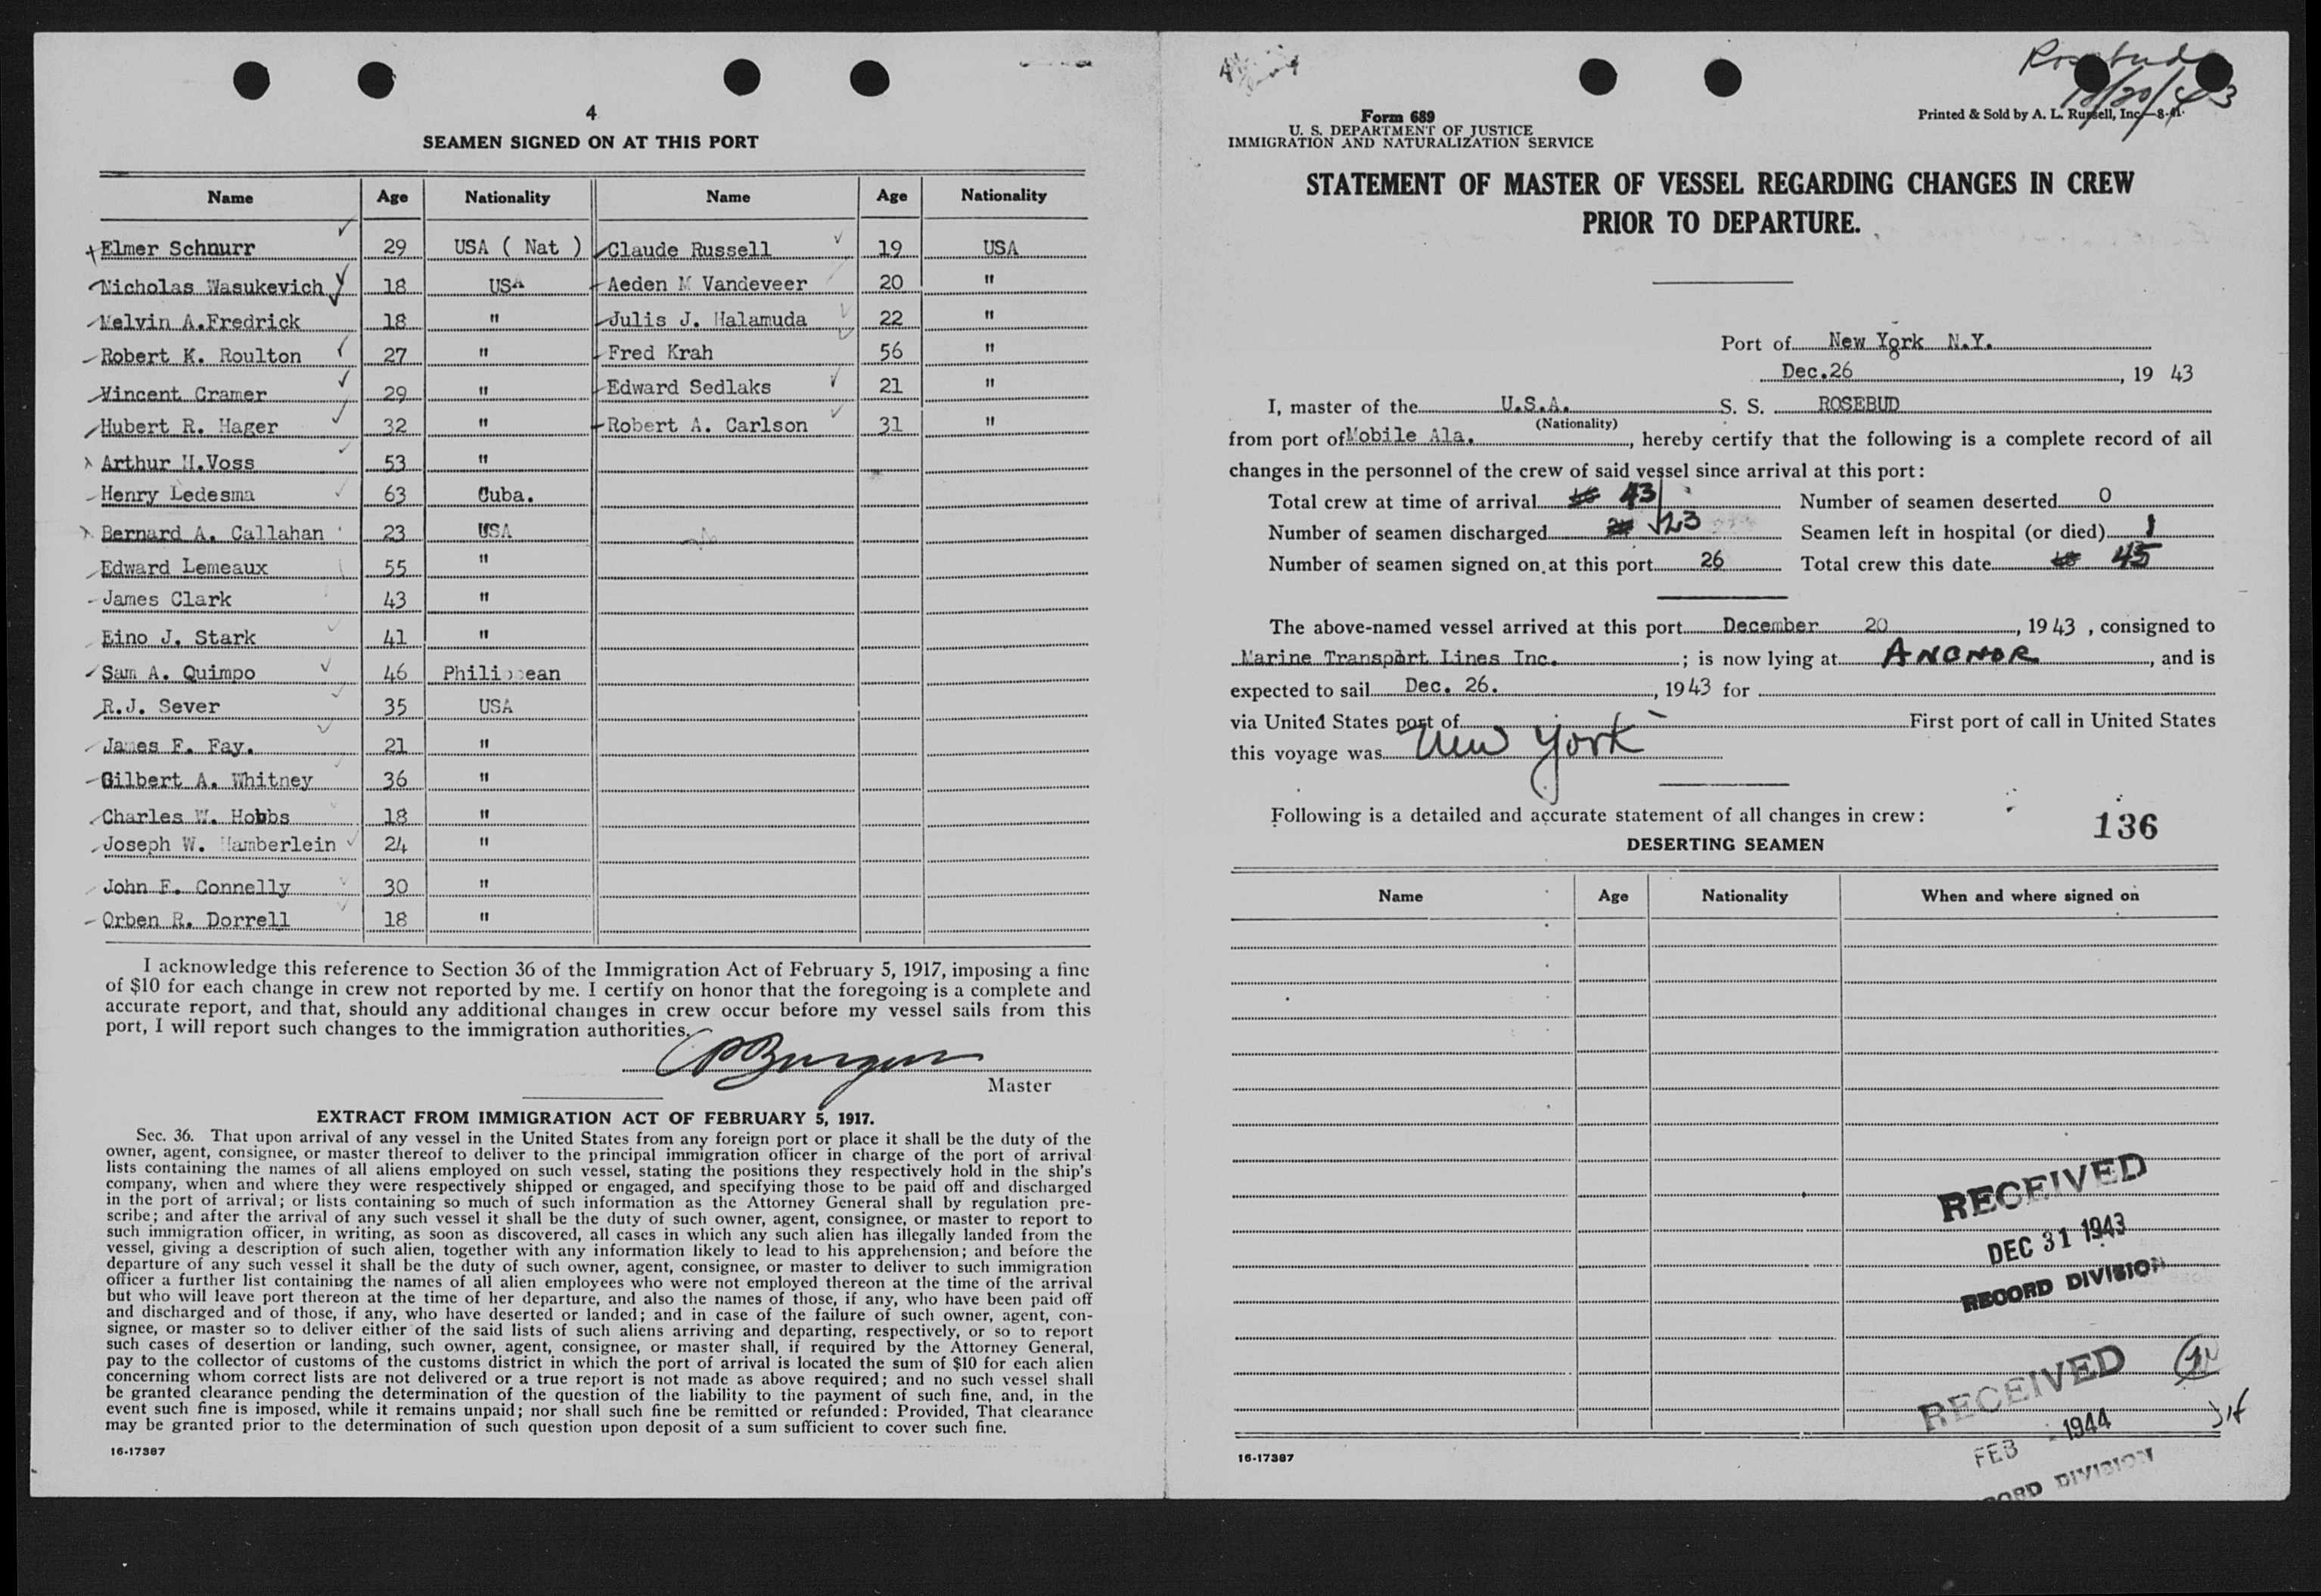 4
SEAMEN SIGNED ON AT THIS PORT
Name Age Nationality Name Age Nationality
Elmer Schnurr 29 USA ( Nat ) Claude Russell 19 USA
Nicholas Wasukevich 18 USA Aeden M Vandeveer 20 "
Melvin A.Fredrick 18 " Julis J. Halamuda 22 "
Robert K. Roulton 27 " Fred Krah 56 "
Vincent Cramer 29 " Edward Sedlaks 21 "
Hubert R. Hager 32 " Robert A. Carlson 31 "
Arthur H.Voss 53 "
Henry Ledesma 63 Cuba.
Bernard A. Callahan 23 USA
Edward Lemeaux 55 "
James Clark 43 "
Eino J. Stark 41 "
Sam A. Quimpo 46 Philippean
R.J. Sever 35 USA
James F. Fay. 21 "
Gilbert A. Whitney 36 "
Charles W. Hobbs 18 "
Joseph W. Hamberlein 24 "
John F. Connelly 30 "
Orben R. Dorrell 18 "
I acknowledge this reference to Section 36 of the Immigration Act of February 5, 1917, imposing a fine
of $10 for each change in crew not reported by me. I certify on honor that the foregoing is a complete and
accurate report, and that, should any additional changes in crew occur before my vessel sails from this
port, I will report such changes to the immigration authorities.
Master
EXTRACT FROM IMMIGRATION ACT OF FEBRUARY 5, 1917.
Sec. 36. That upon arrival of any vessel in the United States from any foreign port or place it shall be the duty of the
owner, agent, consignee, or master thereof to deliver to the principal immigration officer in charge of the port of arrival
lists containing the names of all aliens employed on such vessel, stating the positions they respectively hold in the ship's
company, when and where they were respectively shipped or engaged, and specifying those to be paid off and discharged
in the port of arrival; or lists containing so much of such information as the Attorney General shall by regulation pre-
scribe; and after the arrival of any such vessel it shall be the duty of such owner, agent, consignee, or master to report to
such immigration officer, in writing, as soon as discovered, all cases in which any such alien has illegally landed from the
vessel, giving a description of such alien, together with any information likely to lead to his apprehension; and before the
departure of any such vessel it shall be the duty of such owner, agent, consignee, or master to deliver to such immigration
officer a further list containing the names of all alien employees who were not employed thereon at the time of the arrival
but who will leave port thereon at the time of her departure, and also the names of those, if any, who have been paid off
and discharged and of those, if any, who have deserted or landed; and in case of the failure of such owner, agent, con-
signee, or master so to deliver either of the said lists of such aliens arriving and departing, respectively, or so to report
such cases of desertion or landing, such owner, agent, consignee, or master shall, if required by the Attorney General,
pay to the collector of customs of the customs district in which the port of arrival is located the sum of $10 for each alien
concerning whom correct lists are not delivered or a true report is not made as above required; and no such vessel shall
be granted clearance pending the determination of the question of the liability to the payment of such fine, and, in the
event such fine is imposed, while it remains unpaid; nor shall such fine be remitted or refunded: Provided, That clearance
may be granted prior to the determination of such question upon deposit of a sum sufficient to cover such fine.
16-17387
Rosebud
12/20/43
Form 689
U. S. DEPARTMENT OF JUSTICE
IMMIGRATION AND NATURALIZATION SERVICE
Printed & Sold by A. L. Russell, Inc.—8-41.
STATEMENT OF MASTER OF VESSEL REGARDING CHANGES IN CREW
PRIOR TO DEPARTURE.
Port of New York N.Y.
Dec.26, 19 43
I, master of the U.S.A. S. S. ROSEBUD
(Nationality)
from port of Mobile Ala., hereby certify that the following is a complete record of all
changes in the personnel of the crew of said vessel since arrival at this port:
Total crew at time of arrival 43 Number of seamen deserted 0
Number of seamen discharged 23 Seamen left in hospital (or died) 1
Number of seamen signed on at this port 26 Total crew this date 45
The above-named vessel arrived at this port December 20, 1943, consigned to
Marine Transport Lines Inc.; is now lying at ANCHOR, and is
expected to sail Dec. 26., 1943 for
via United States port of First port of call in United States
this voyage was New York
Following is a detailed and accurate statement of all changes in crew:
136
DESERTING SEAMEN
Name Age Nationality When and where signed on
RECEIVED
DEC 31 1943
RECORD DIVISION
RECEIVED
FEB 1944
ORD DIVISION
16-17387